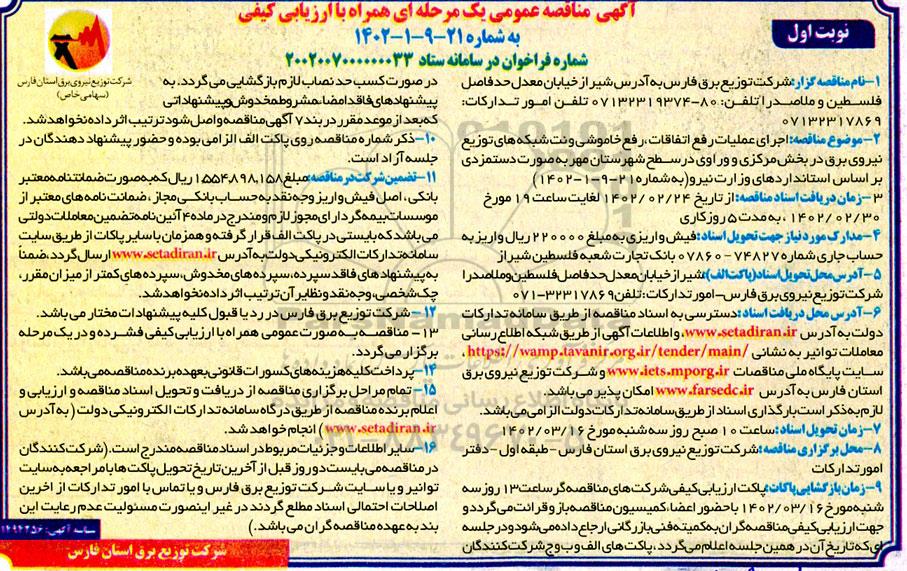 آگهی مناقصه عمومی یک مرحله ای همراه با ارزیابی کیفی
به شماره ۲۱-۹-۱-۱۴۰۲
شماره فراخوان در سامانه ستاد ۲۰۰۲۰۰۷۰۰۰۰۰۰۰۳۳
نوبت اول
شرکت توزیع نیروی برق استان فارس
(سهامی خاص)
۱-نام مناقصه گزار: شرکت توزیع برق فارس به آدرس شیراز خیابان معدل حد فاصل
فلسطین و ملاصدرا تلفن: ۸۰-۰۷۱۳۲۳۱۹۳۷۴ تلفن امور تدارکات:
۰۷۱۳۲۳۱۷۸۶۹
۲-موضوع مناقصه: اجرای عملیات رفع اتفاقات، رفع خاموشی و نت شبکه های توزیع
نیروی برق در بخش مرکزی و وراوی در سطح شهرستان مهر به صورت دستمزدی
بر اساس استانداردهای وزارت نیرو (به شماره ۲۱-۹-۱-۱۴۰۲)
۳-زمان دریافت اسناد مناقصه: از تاریخ ۱۴۰۲/۰۲/۲۴ لغایت ساعت ۱۹ مورخ
۱۴۰۲/۰۲/۳۰ ، به مدت ۵ روز کاری
۴-مدارک مورد نیاز جهت تحویل اسناد: فیش واریزی به مبلغ ۲۲۰۰۰۰۰ ریال واریز به
حساب جاری شماره ۷۴۸۲۷-۰۷۸۶۰ بانک تجارت شعبه فلسطین شیراز
۵-آدرس محل تحویل اسناد (پاکت الف): شیراز خیابان معدل حد فاصل فلسطین و ملاصدرا
شرکت توزیع نیروی برق فارس-امور تدارکات: تلفن ۳۲۳۱۷۸۶۹-۰۷۱
۶-آدرس محل دریافت اسناد: دسترسی به اسناد مناقصه از طریق سامانه تدارکات
دولت به آدرس www.setadiran.ir، و اطلاعات آگهی از طریق شبکه اطلاع رسانی
معاملات توانیر به نشانی https://wamp.tavanir.org.ir/tender/main/ ،
سایت پایگاه ملی مناقصات www.iets.mporg.ir و شرکت توزیع نیروی برق
استان فارس به آدرس www.farsedc.ir امکان پذیر می باشد.
لازم به ذکر است بارگذاری اسناد از طریق سامانه تدارکات دولت الزامی می باشد.
۷-زمان تحویل اسناد: ساعت ۱۰ صبح روز سه شنبه مورخ ۱۴۰۲/۰۳/۱۶
۸-محل برگزاری مناقصه: شرکت توزیع نیروی برق استان فارس -طبقه اول -دفتر
امور تدارکات
۹-زمان بازگشایی پاکات: پاکت ارزیابی کیفی شرکت های مناقصه گر ساعت ۱۳ روز سه
شنبه مورخ ۱۴۰۲/۰۳/۱۶ با حضور اعضاء کمیسیون مناقصه باز و قرائت می گردد و
جهت ارزیابی کیفی مناقصه گران به کمیته فنی بازرگانی ارجاع داده می شود و در جلسه
ای که تاریخ آن در همین جلسه اعلام می گردد، پاکت های الف و ب و ج شرکت کنندگان
در صورت کسب حد نصاب لازم بازگشایی می گردد. به
پیشنهادهای فاقد امضاء، مشروط مخدوش و پیشنهاداتی
که بعد از موعد مقرر در بند ۷ آگهی مناقصه واصل شود ترتیب اثر داده نخواهد شد.
۱۰-ذکر شماره مناقصه روی پاکت الف الزامی بوده و حضور پیشنهاد دهندگان در
جلسه آزاد است.
۱۱-تضمین شرکت در مناقصه: مبلغ ۱،۵۵۴،۸۹۸،۱۵۸ ریال که به صورت ضمانتنامه معتبر
بانکی، اصل فیش واریز وجه نقد به حساب بانکی مجاز، ضمانت نامه های معتبر از
موسسات بیمه گر دارای مجوز لازم و مندرج در ماده ۴ آئین نامه تضمین معاملات دولتی
می باشد که بایستی در پاکت الف قرار گرفته و همزمان با سایر پاکات از طریق سایت
سامانه تدارکات الکترونیکی دولت به آدرس www.setadiran.ir ارسال گردد، ضمناً
به پیشنهاد های فاقد سپرده، سپرده های مخدوش، سپرده های کمتر از میزان مقرر،
چک شخصی، وجه نقد و نظایر آن ترتیب اثر داده نخواهد شد.
۱۲- شرکت توزیع برق فارس در رد یا قبول کلیه پیشنهادات مختار می باشد.
۱۳- مناقصه به صورت عمومی همراه با ارزیابی کیفی فشرده و در یک مرحله
برگزار می گردد.
۱۴- پرداخت کلیه هزینه های کسورات قانونی بعهده برنده مناقصه می باشد.
۱۵-تمام مراحل برگزاری مناقصه از دریافت و تحویل اسناد مناقصه و ارزیابی و
اعلام برنده مناقصه از طریق درگاه سامانه تدارکات الکترونیکی دولت (به آدرس
www.setadiran.ir ) انجام خواهد شد.
۱۶-سایر اطلاعات و جزئیات مربوط در اسناد مناقصه مندرج است. (شرکت کنندگان
در مناقصه می بایست دو روز قبل از آخرین تاریخ تحویل پاکت ها با مراجعه به سایت
توانیر و یا سایت شرکت توزیع برق فارس و یا تماس با امور تدارکات از اخرین
اصلاحات احتمالی اسناد مطلع گردند در غیر اینصورت مسئولیت عدم رعایت این
بند به عهده مناقصه گران می باشد.)
شناسه آگهی: ۱۴۹۴۲۵۶
شرکت توزیع برق استان فارس